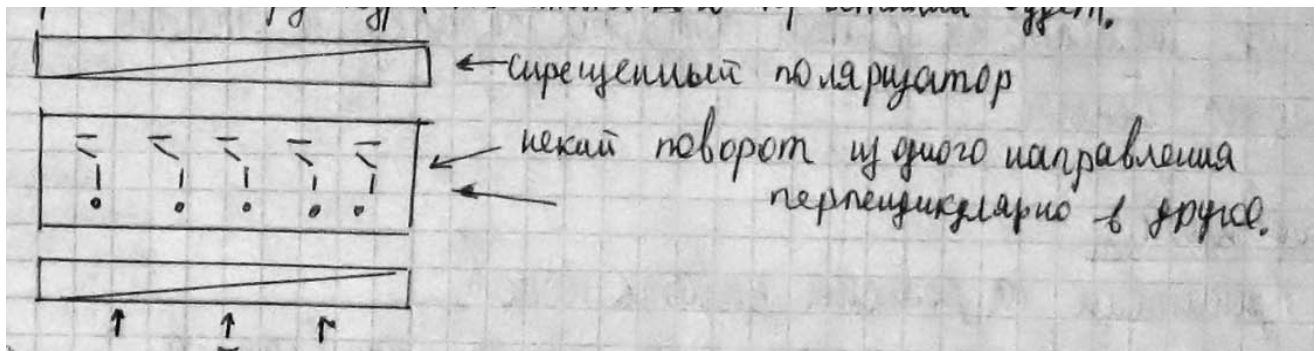 будет.
скрещенный поляризатор
некий поворот из одного направления
перпендикулярно в другое.